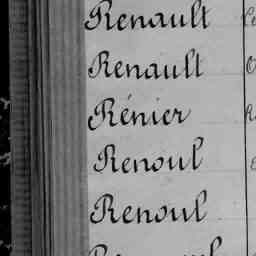 Renault
Renault
Rénier
Renoul
Renoul